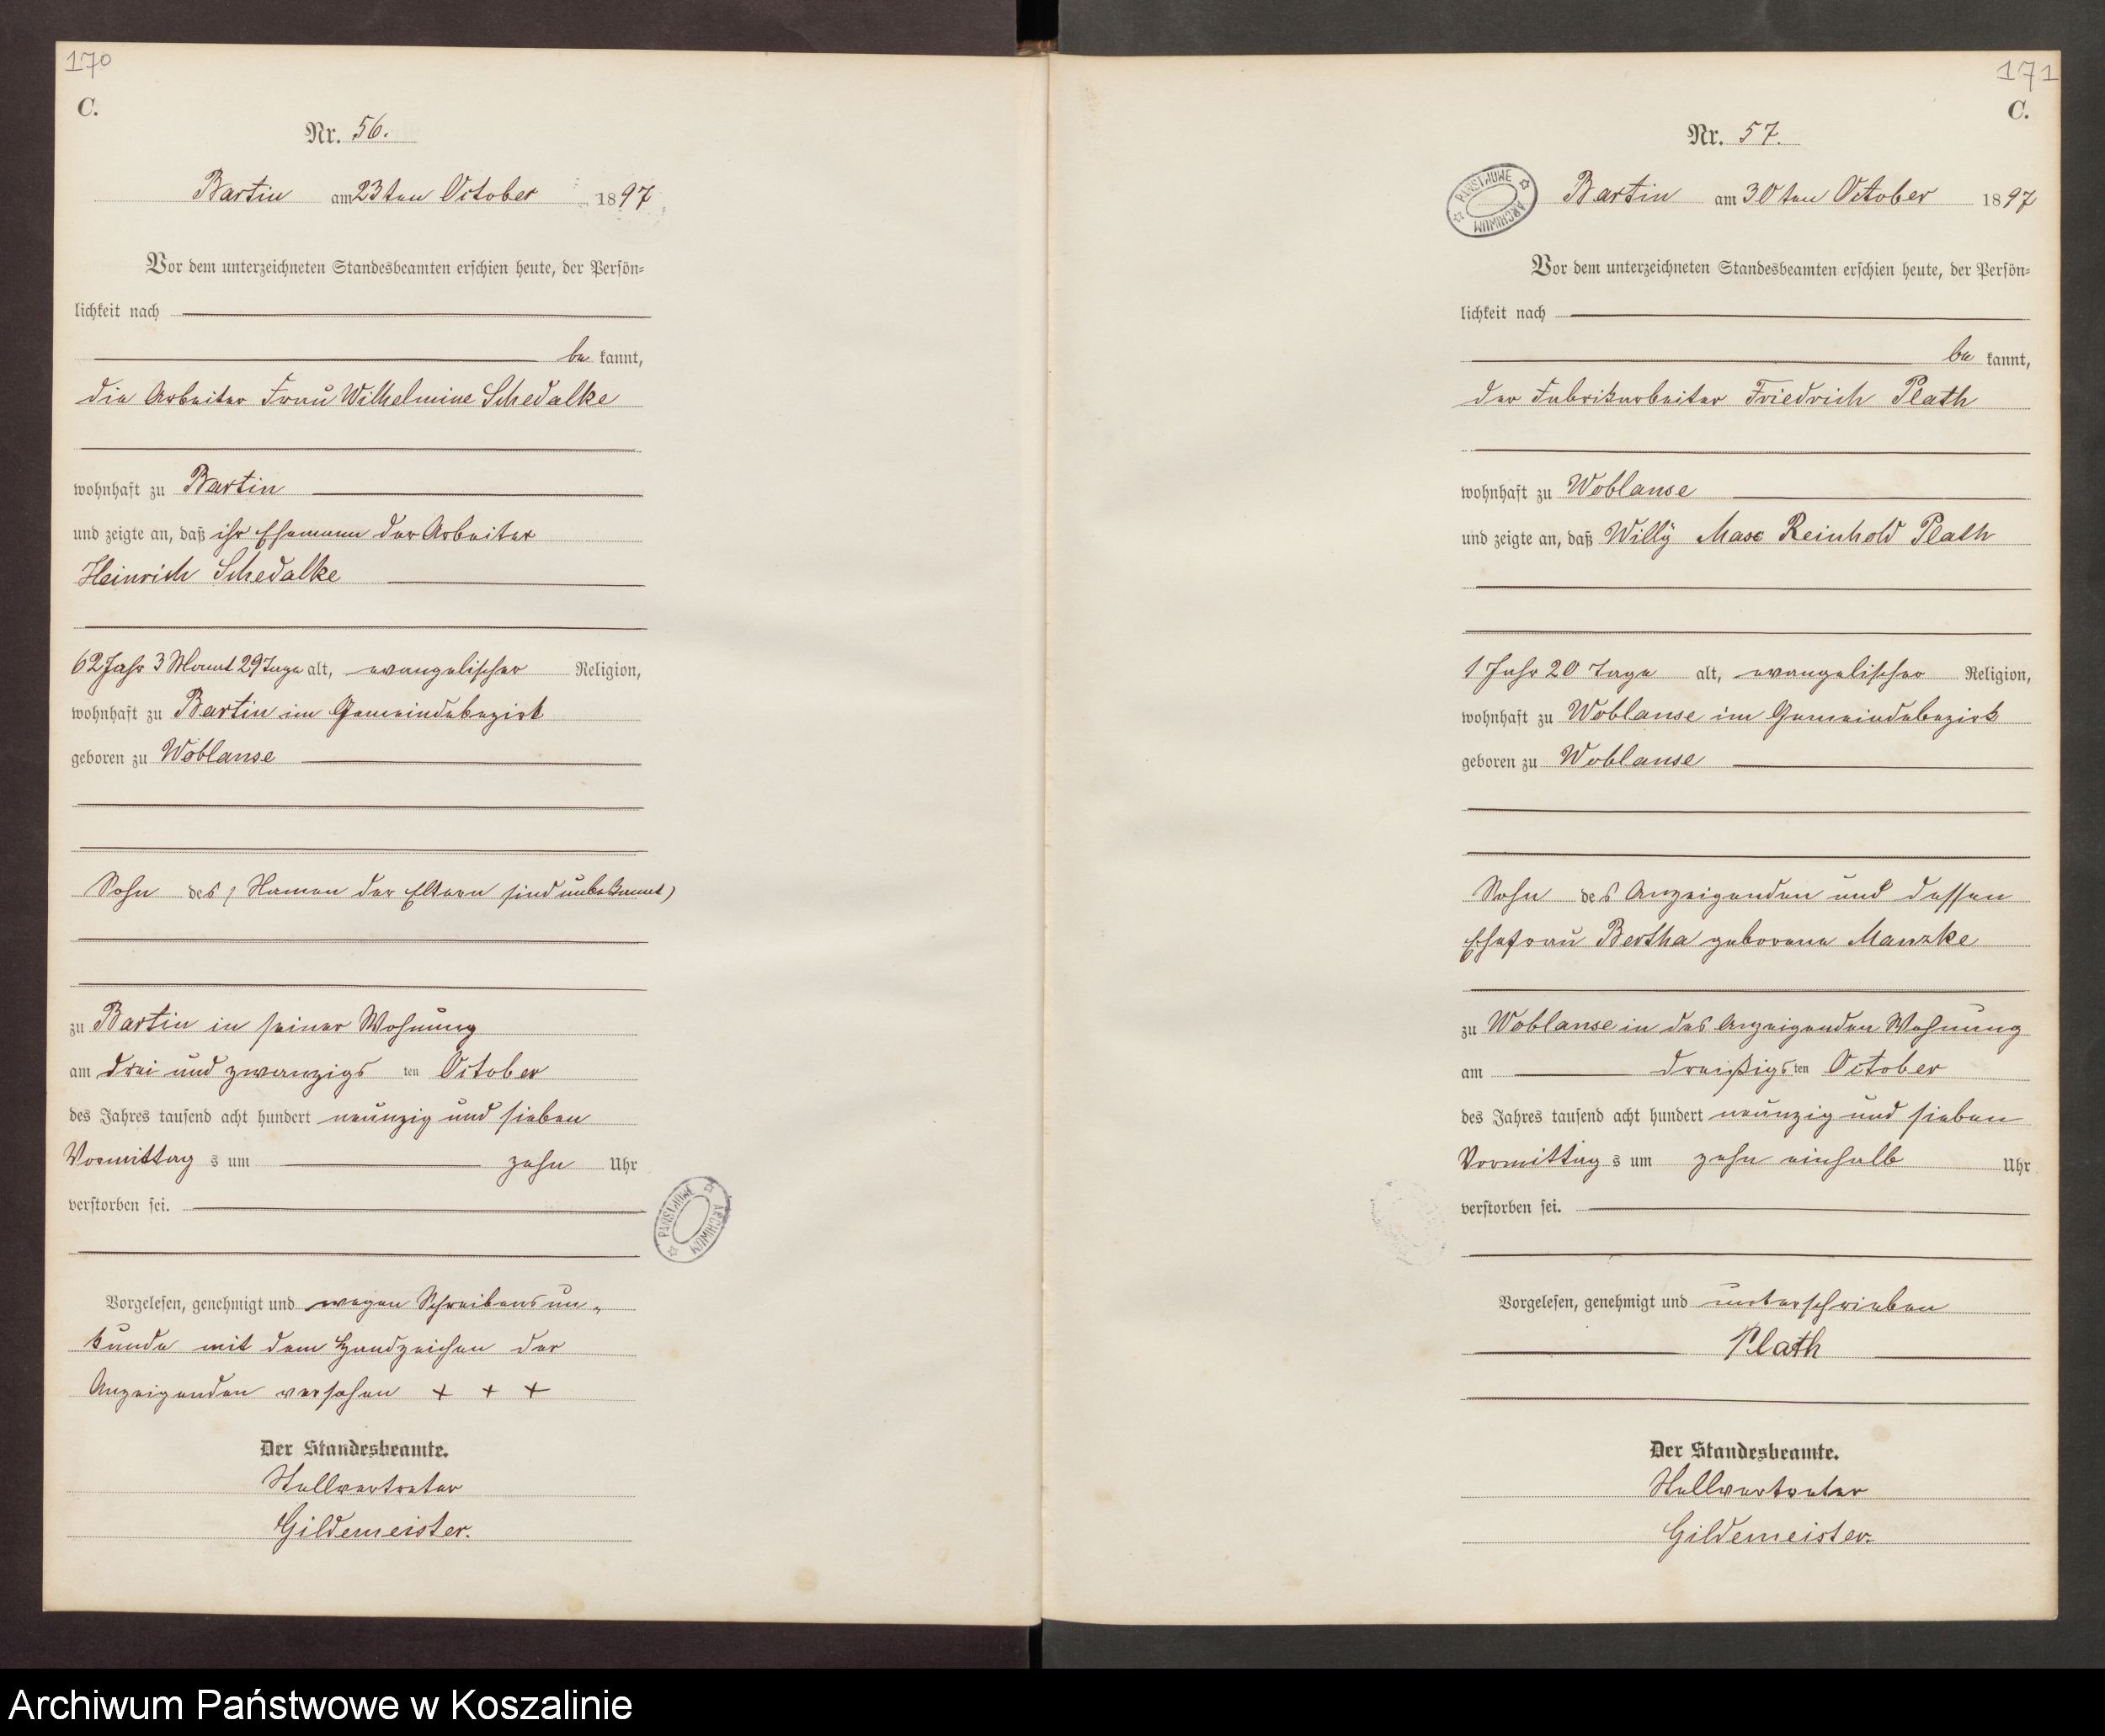 170
C.
Nr. 56.
Bartin am 23ten October 1897
Vor dem unterzeichneten Standesbeamten erschien heute, der Persön-
lichkeit nach
be kannt,
die Arbeiter Frau Wilhelmine Schedalke
wohnhaft zu Bartin
und zeigte an, daß ihr Ehemann der Arbeiter
Heinrich Schedalke
62 Jahr 3 Monat 29 Tage alt, evangelischer Religion,
wohnhaft zu Bartin im Gemeindebezirk
geboren zu Woblanse
Sohn des (Namen der Eltern sind unbekannt)
zu Bartin in seiner Wohnung
am drei und zwanzigs ten October
des Jahres tausend acht hundert neunzig und sieben
Vormittag s um zehn Uhr
verstorben sei.
Vorgelesen, genehmigt und wegen Schreibensun-
kunde mit dem Handzeichen der
Anzeigenden versehen + + +
Der Standesbeamte.
Stellvertreter
Gildemeister.
PAŃSTWOWE ARCHIWUM
171
C.
Nr. 57.
PAŃSTWOWE ARCHIWUM
Bartin am 30ten October 1897
Vor dem unterzeichneten Standesbeamten erschien heute, der Persön-
lichkeit nach
be kannt,
der Fabrikarbeiter Friedrich Plath
wohnhaft zu Woblanse
und zeigte an, daß Willÿ Max Reinhold Plath
1 Jahr 20 Tage alt, evangelischer Religion,
wohnhaft zu Woblanse im Gemeindebezirk
geboren zu Woblanse
Sohn des Anzeigenden und dessen
Ehefrau Bertha geborene Manzke
zu Woblanse in des Anzeigenden Wohnung
am dreißigs ten October
des Jahres tausend acht hundert neunzig und sieben
Vormittag s um zehn einhalb Uhr
verstorben sei.
Vorgelesen, genehmigt und unterschrieben
Plath
Der Standesbeamte.
Stellvertreter
Gildemeister.
Archiwum Państwowe w Koszalinie